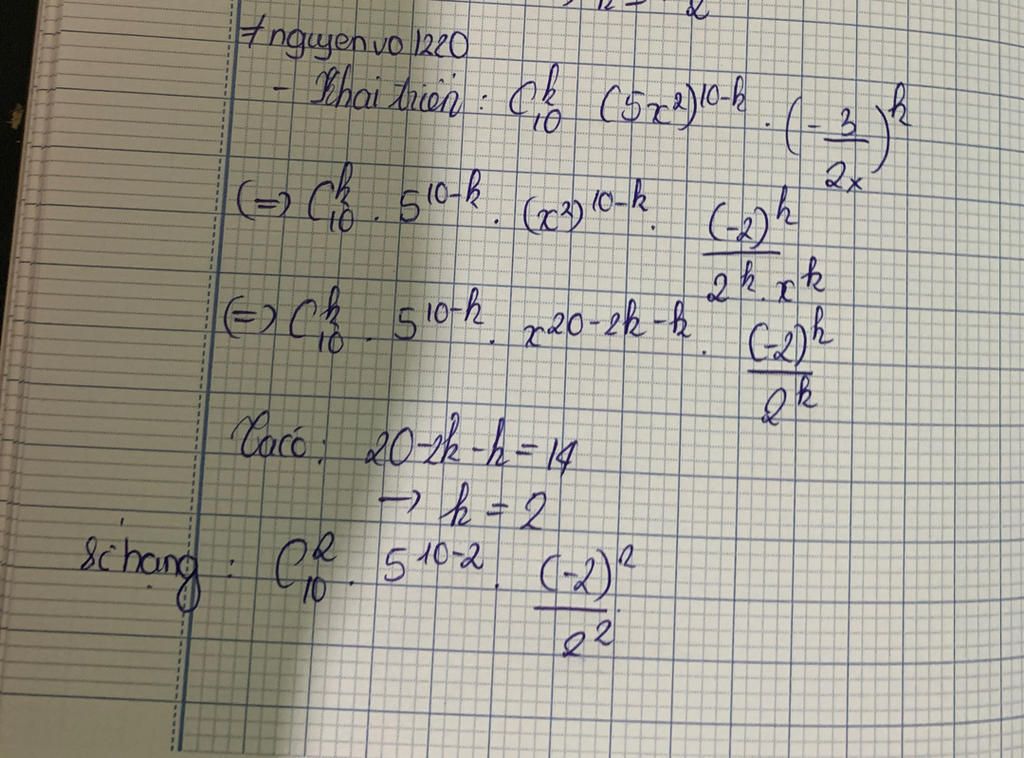 ≠nguyenvo1220
- Khai triển : C₁₀ᵏ (5x²)¹⁰⁻ᵏ . (-3/2x)ᵏ
(=) C₁₀ᵏ . 5¹⁰⁻ᵏ . (x²)¹⁰⁻ᵏ . (-2)ᵏ/2ᵏ.xᵏ
(=) C₁₀ᵏ . 5¹⁰⁻ᵏ . x²⁰⁻²ᵏ⁻ᵏ . (-2)ᵏ/2ᵏ
Ta có: 20-2k-k=14
→ k = 2
Số hạng : C₁₀² . 5¹⁰⁻² . (-2)²/2²